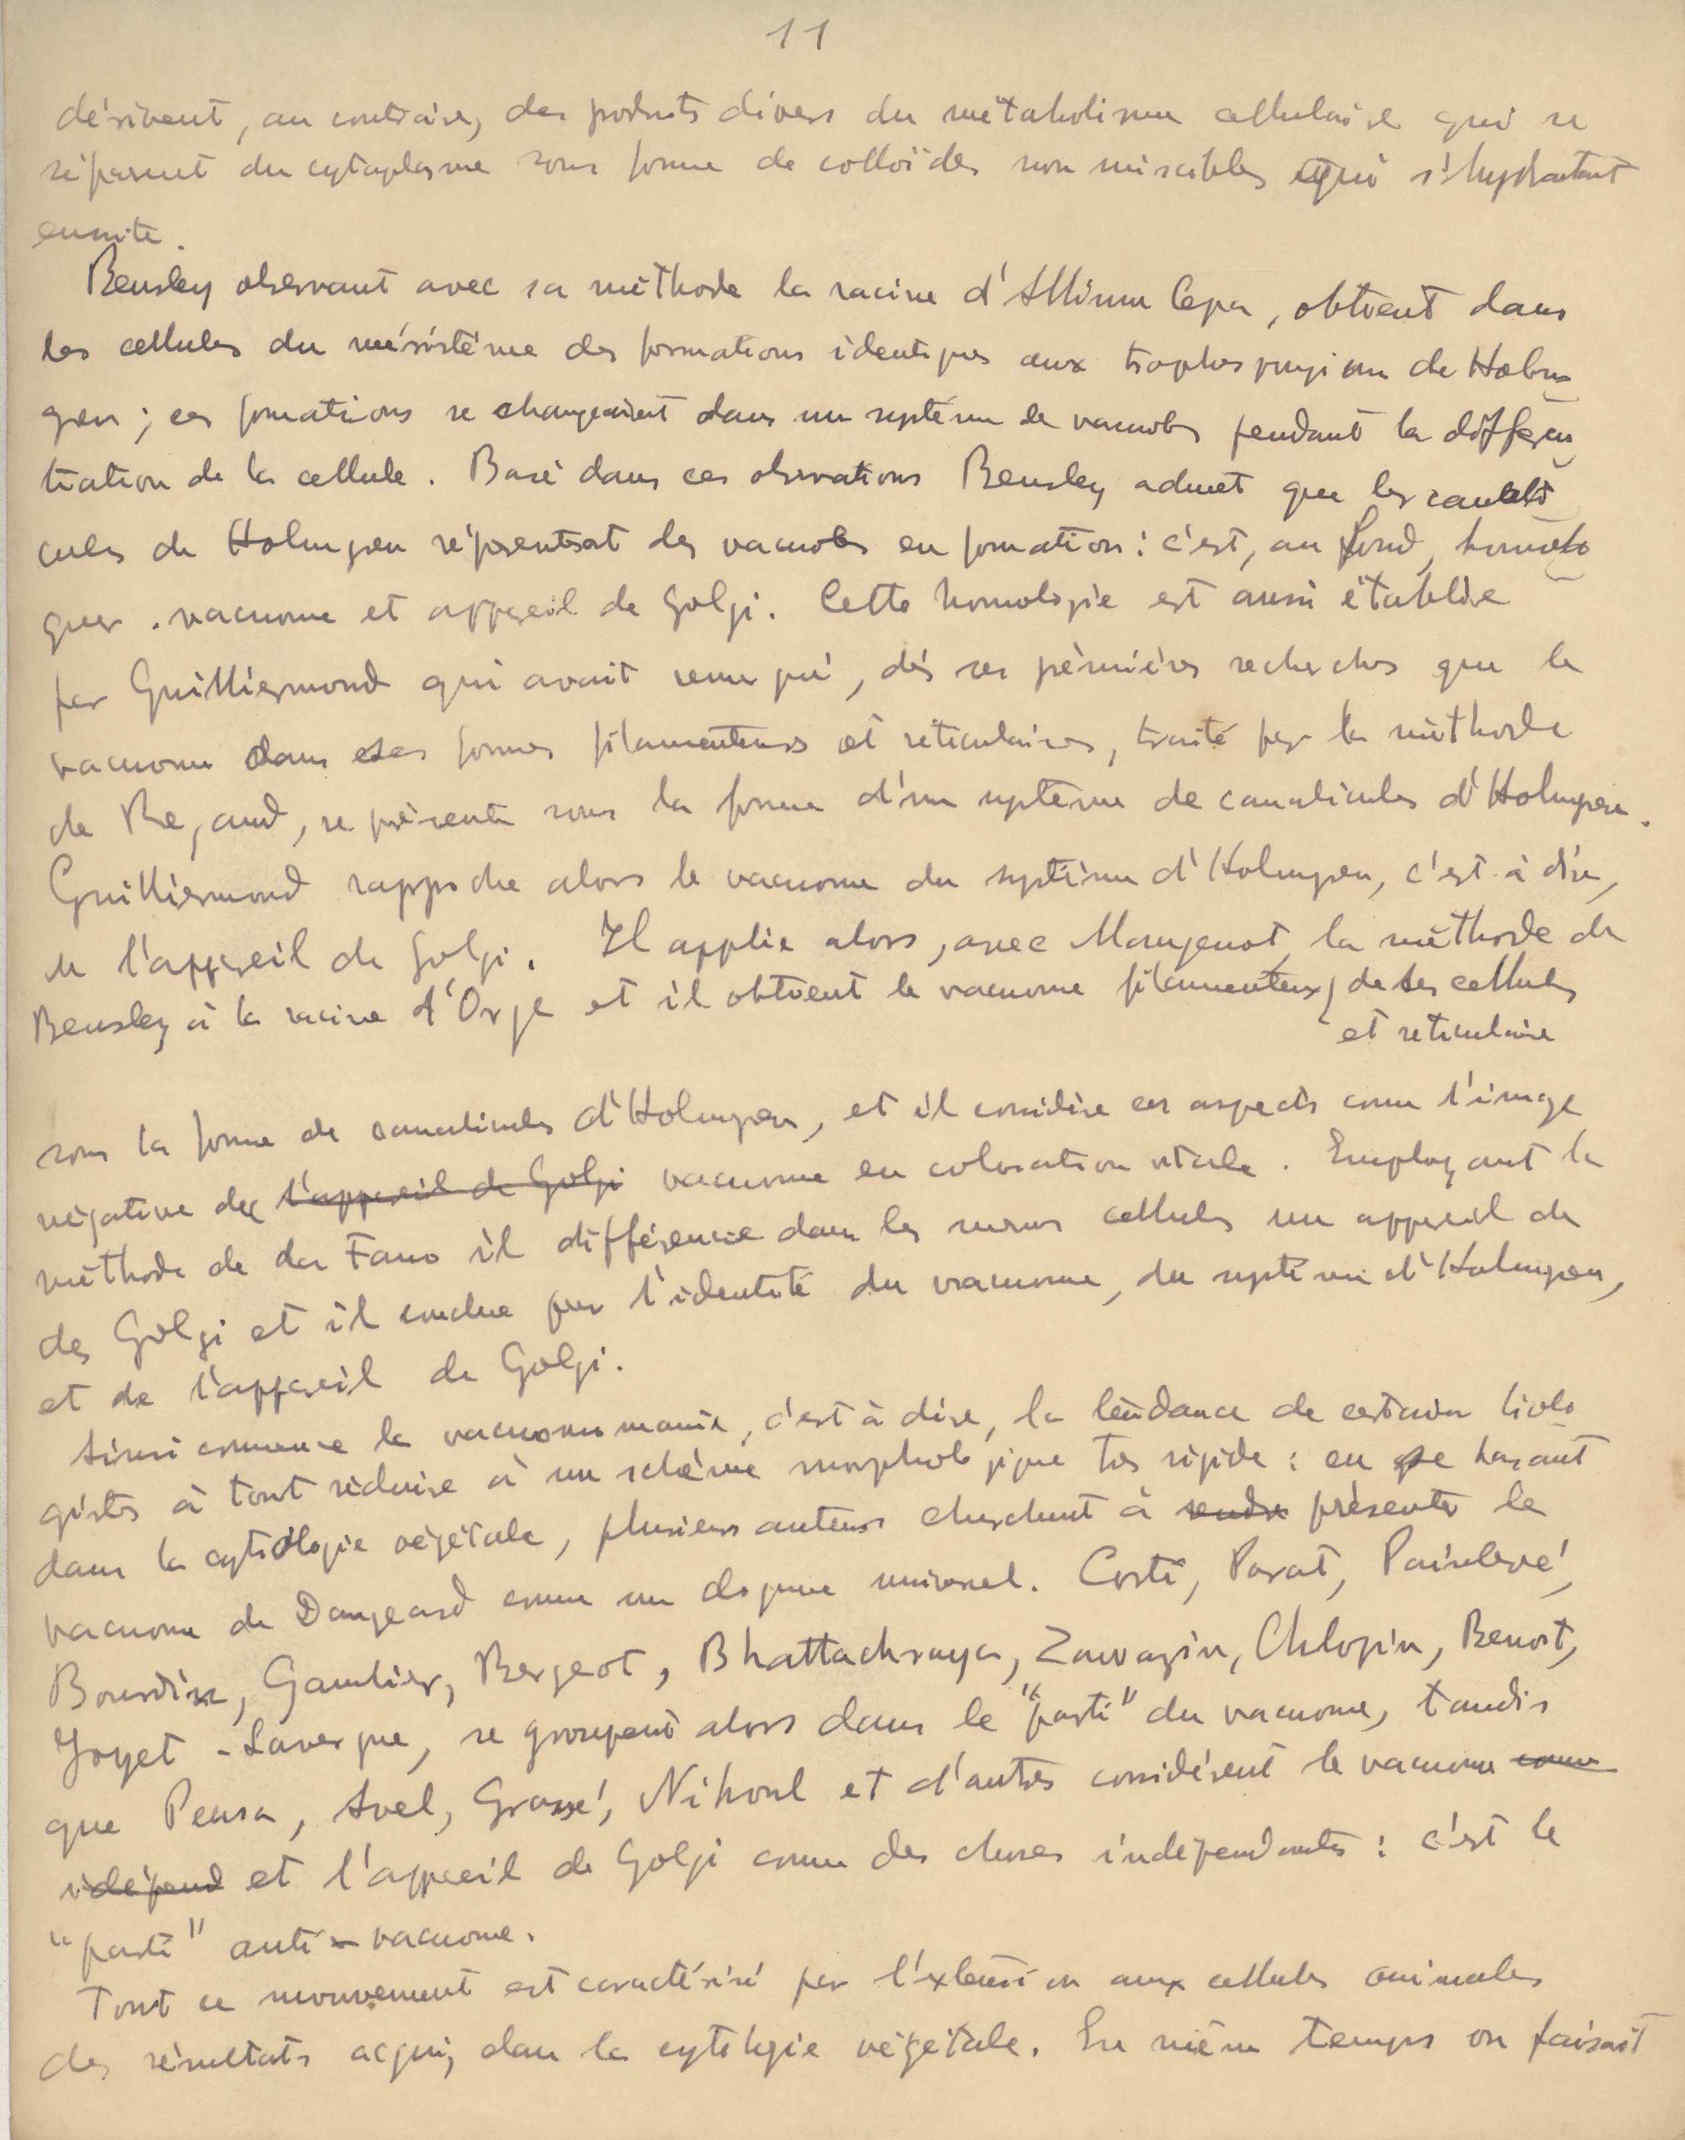 11
dérivent, au contraire, des produits divers du métabolisme cellulaire qui se
séparent du cytoplasme sous forme de colloïdes non miscibles qui s'hydratent
ensuite.
Bensley observant avec sa méthode la racine d'Allium Cepa, obtient dans
les cellules du méristème des formations identiques aux trophospongium de Holm
gren; ces formations se changeaient dans un système de vacuoles pendant la différen
tiation de la cellule. Basé dans ces observations Bensley admet que les canali
cules de Holmgren représentent des vacuoles en formation: c'est, au fond, homolo
guer vacuome et appareil de Golgi. Cette homologie est aussi établie
par Guilliermond qui avait remarqué, dès ses prémières recherches que le
vacuome dans ses formes filamenteuses et réticulaires, traité par la méthode
de Regaud, se présente sous la forme d'un système de canalicules d'Holmgren.
Guilliermond rapproche alors le vacuome du système d'Holmgren, c'est à dire,
de l'appareil de Golgi. Il applie alors, avec Mangenot, la méthode de
Bensley à la racine d'Orge et il obtient le vacuome filamenteux de ses cellules
et reticulaire
sous la forme de canalicules d'Holmgren, et il considère ces aspects comme l'image
négative de l'appareil de Golgi vacuome en coloration vitale. Employant la
méthode de da Fano il différencie dans les mêmes cellules un appareil de
de Golgi et il conclue par l'identité du vacuome, du système d'Holmgren,
et de l'appareil de Golgi.
Ainsi commence la vacuomomanie, c'est à dire, la tendance de certains biolo
gistes à tout réduire à un schème morphologique très rigide: en se basant
dans la cytologie végétale, plusieurs auteurs cherchent à rendre présenter le
vacuome de Dangeard comme un dogme universel. Corti, Parat, Painlevé,
Bourdin, Gautier, Bergeot, Bhattacharya, Zawarzin, Chlopin, Benoit,
Joyet-Lavergne, se groupent alors dans le "parti" du vacuome, tandis
que Pensa, Avel, Grassé, Nihoul et d'autres considérent le vacuome comme
idépend et l'appareil de Golgi comme des choses indépendantes: c'est le
"parti" anti-vacuome.
Tout ce mouvement est caractérisé par l'extension aux cellules animales
des résultats acquis dans la cytologie végétale. En même temps on faisait